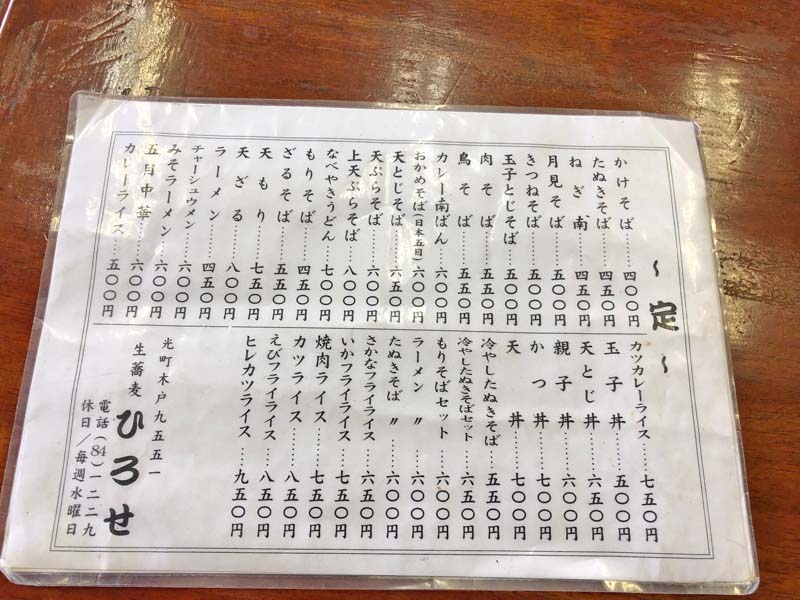 ～定～
かけそば……四〇〇円
たぬきそば……四五〇円
ねぎ南……四五〇円
月見そば……五〇〇円
きつねそば……五〇〇円
玉子とじそば……五〇〇円
肉そば……五五〇円
鳥そば……五五〇円
カレー南ばん……六〇〇円
おかめそば(日本五目)……六〇〇円
天とじそば……六五〇円
天ぷらそば……六〇〇円
上天ぷらそば……八〇〇円
なべやきうどん……七〇〇円
もりそば……四五〇円
ざるそば……五五〇円
天もり……七五〇円
天ざる……八〇〇円
ラーメン……四五〇円
チャーシュウメン……六〇〇円
みそラーメン……六〇〇円
五目中華……六〇〇円
カレーライス……五〇〇円
カツカレーライス……七五〇円
玉子丼……五〇〇円
天とじ丼……六五〇円
親子丼……六〇〇円
かつ丼……七〇〇円
天丼……七〇〇円
冷やしたぬきそば……五五〇円
冷やしたぬきそばセット……七〇〇円
もりそばセット……六〇〇円
ラーメン〃……六〇〇円
たぬきそば〃……六〇〇円
さかなフライライス……六五〇円
いかフライライス……七五〇円
焼肉ライス……七五〇円
カツライス……八五〇円
えびフライライス……八五〇円
ヒレカツライス……九五〇円
光町木戸九五五一
生蕎麦ひろせ
電話(84)一二二九
休日／毎週水曜日